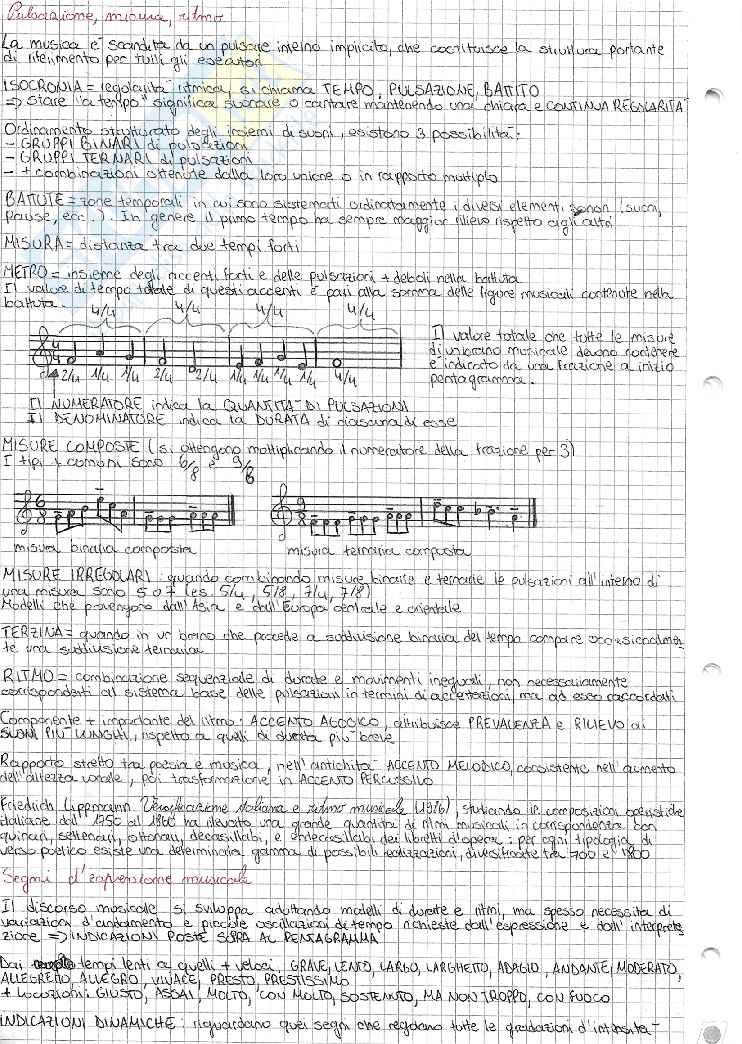 Pulsazione, misura, ritmo
La musica è scandita da un pulsare interno implicito, che costituisce la struttura portante
di riferimento per tutti gli esecutori
ISOCRONIA = regolarità ritmica, si chiama TEMPO, PULSAZIONE, BATTITO
=> Stare "a tempo" significa suonare o cantare mantenendo una chiara e CONTINUA REGOLARITÀ
Ordinamento strutturato degli insiemi di suoni, esistono 3 possibilità:
- GRUPPI BINARI di pulsazioni
- GRUPPI TERNARI di pulsazioni
- + combinazioni ottenute dalla loro unione o in rapporto multiplo
BATTUTE = zone temporali in cui sono sistemati ordinatamente i diversi elementi sonori (suoni,
pause, ecc.). In genere il primo tempo ha sempre maggior rilievo rispetto agli altri
MISURA = distanza tra due tempi forti
METRO = insieme degli accenti forti e delle pulsazioni + deboli nella battuta
Il valore di tempo totale di questi accenti è pari alla somma delle figure musicali contenute nella
battuta.
4/4 4/4 4/4 4/4
4 4
2/4 1/4 1/4 2/4 2/4 1/4 1/4 1/4 1/4 4/4
Il valore totale che tutte le misure
di un brano musicale devono contenere
è indicato da una frazione a inizio
pentagramma.
Il NUMERATORE indica la QUANTITÀ DI PULSAZIONI
Il DENOMINATORE indica la DURATA di ciascuna di esse
MISURE COMPOSTE (si ottengono moltiplicando il numeratore della frazione per 3)
I tipi + comuni sono 6/8 e 9/8
6 8
9 8
misura binaria composta
misura ternaria composta
MISURE IRREGOLARI: quando combinando misure binarie e ternarie le pulsazioni all'interno di
una misura sono 5 o 7 (es. 5/4, 5/8, 7/4, 7/8)
Modelli che provengono dall'Asia e dall'Europa centrale e orientale
TERZINA = quando in un brano che procede a suddivisione binaria del tempo compare occasionalmen-
te una suddivisione ternaria
RITMO = combinazione sequenziale di durate e movimenti ineguali, non necessariamente
corrispondenti al sistema base delle pulsazioni in termini di accentazioni, ma ad esso raccordati
Componente + importante del ritmo: ACCENTO AGOGICO, attribuisce PREVALENZA e RILIEVO ai
SUONI PIÙ LUNGHI, rispetto a quelli di durata più breve
Rapporto stretto tra poesia e musica, nell'antichità ACCENTO MELODICO, consistente nell'aumento
dell'altezza vocale, poi trasformazione in ACCENTO PERCUSSIVO
Friedrich Lippmann Versificazione italiana e ritmo musicale (1986), studiando composizioni operistiche
italiane dal 1750 al 1800 ha rilevato una grande quantità di ritmi musicali in corrispondenza con
quinari, settenari, ottonari, decasillabi, e endecasillabi dei libretti d'opera: per ogni tipologia di
verso poetico esiste una determinata gamma di possibili realizzazioni, diversificate tra 700 e 1800
Segni d'espressione musicale
Il discorso musicale si sviluppa adottando modelli di durate e ritmi, ma spesso necessita di
variazioni d'andamento e piccole oscillazioni di tempo richieste dall'espressione e dall'interpreta-
zione => INDICAZIONI POSTE SOPRA AL PENTAGRAMMA
Dai tempi lenti a quelli + veloci, GRAVE, LENTO, LARGO, LARGHETTO, ADAGIO, ANDANTE, MODERATO,
ALLEGRETTO, ALLEGRO, VIVACE, PRESTO, PRESTISSIMO
+ locuzioni: GIUSTO, ASSAI, MOLTO, CON MOLTO, SOSTENUTO, MA NON TROPPO, CON FUOCO
INDICAZIONI DINAMICHE: riguardano quei segni che regolano tutte le gradazioni d'intensità-